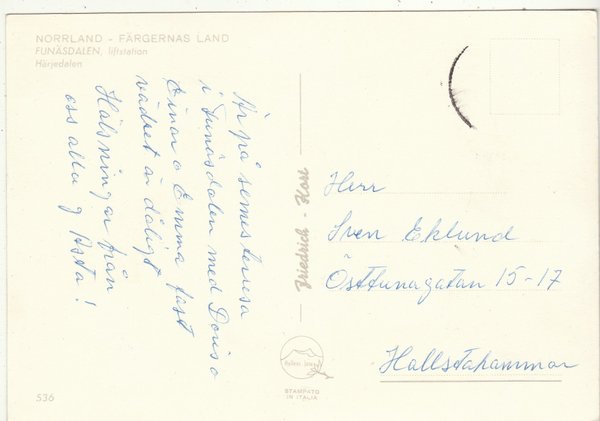 NORRLAND - FÄRGERNAS LAND
FUNÄSDALEN, liftstation
Härjedalen
Är på semesterresa
i Funäsdalen med Doris o
Einar o Emma fast
vädret är dåligt
Hälsningar från
oss alla g Asta!
Friedrich - Kort
Herr
Sven Eklund
Östtunagatan 15-17
Hallstahammar
STAMPATO
IN ITALIA
536